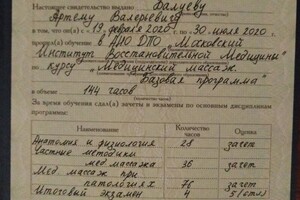 Настоящее свидетельство выдано Валиеву
Артёму Валерьевичу
в том, что он(а) с „19" февраля 2020 г. по „30" июля 2020 г.
прошёл(а) обучение в АНО ДПО „Московский
Институт Восстановительной Медицины"
по курсу „Медицинский массаж.
Базовая программа"
в объеме 144 часов
За время обучения сдал(а) зачеты и экзамены по основным дисциплинам
программы:
Наименование Количество часов Оценка
Анатомия и физиология 28 зачет
Частные методики
мед. массажа 36 зачет
Мед. массаж при
патологиях 76 зачет
Итоговый экзамен 4 5/отл/